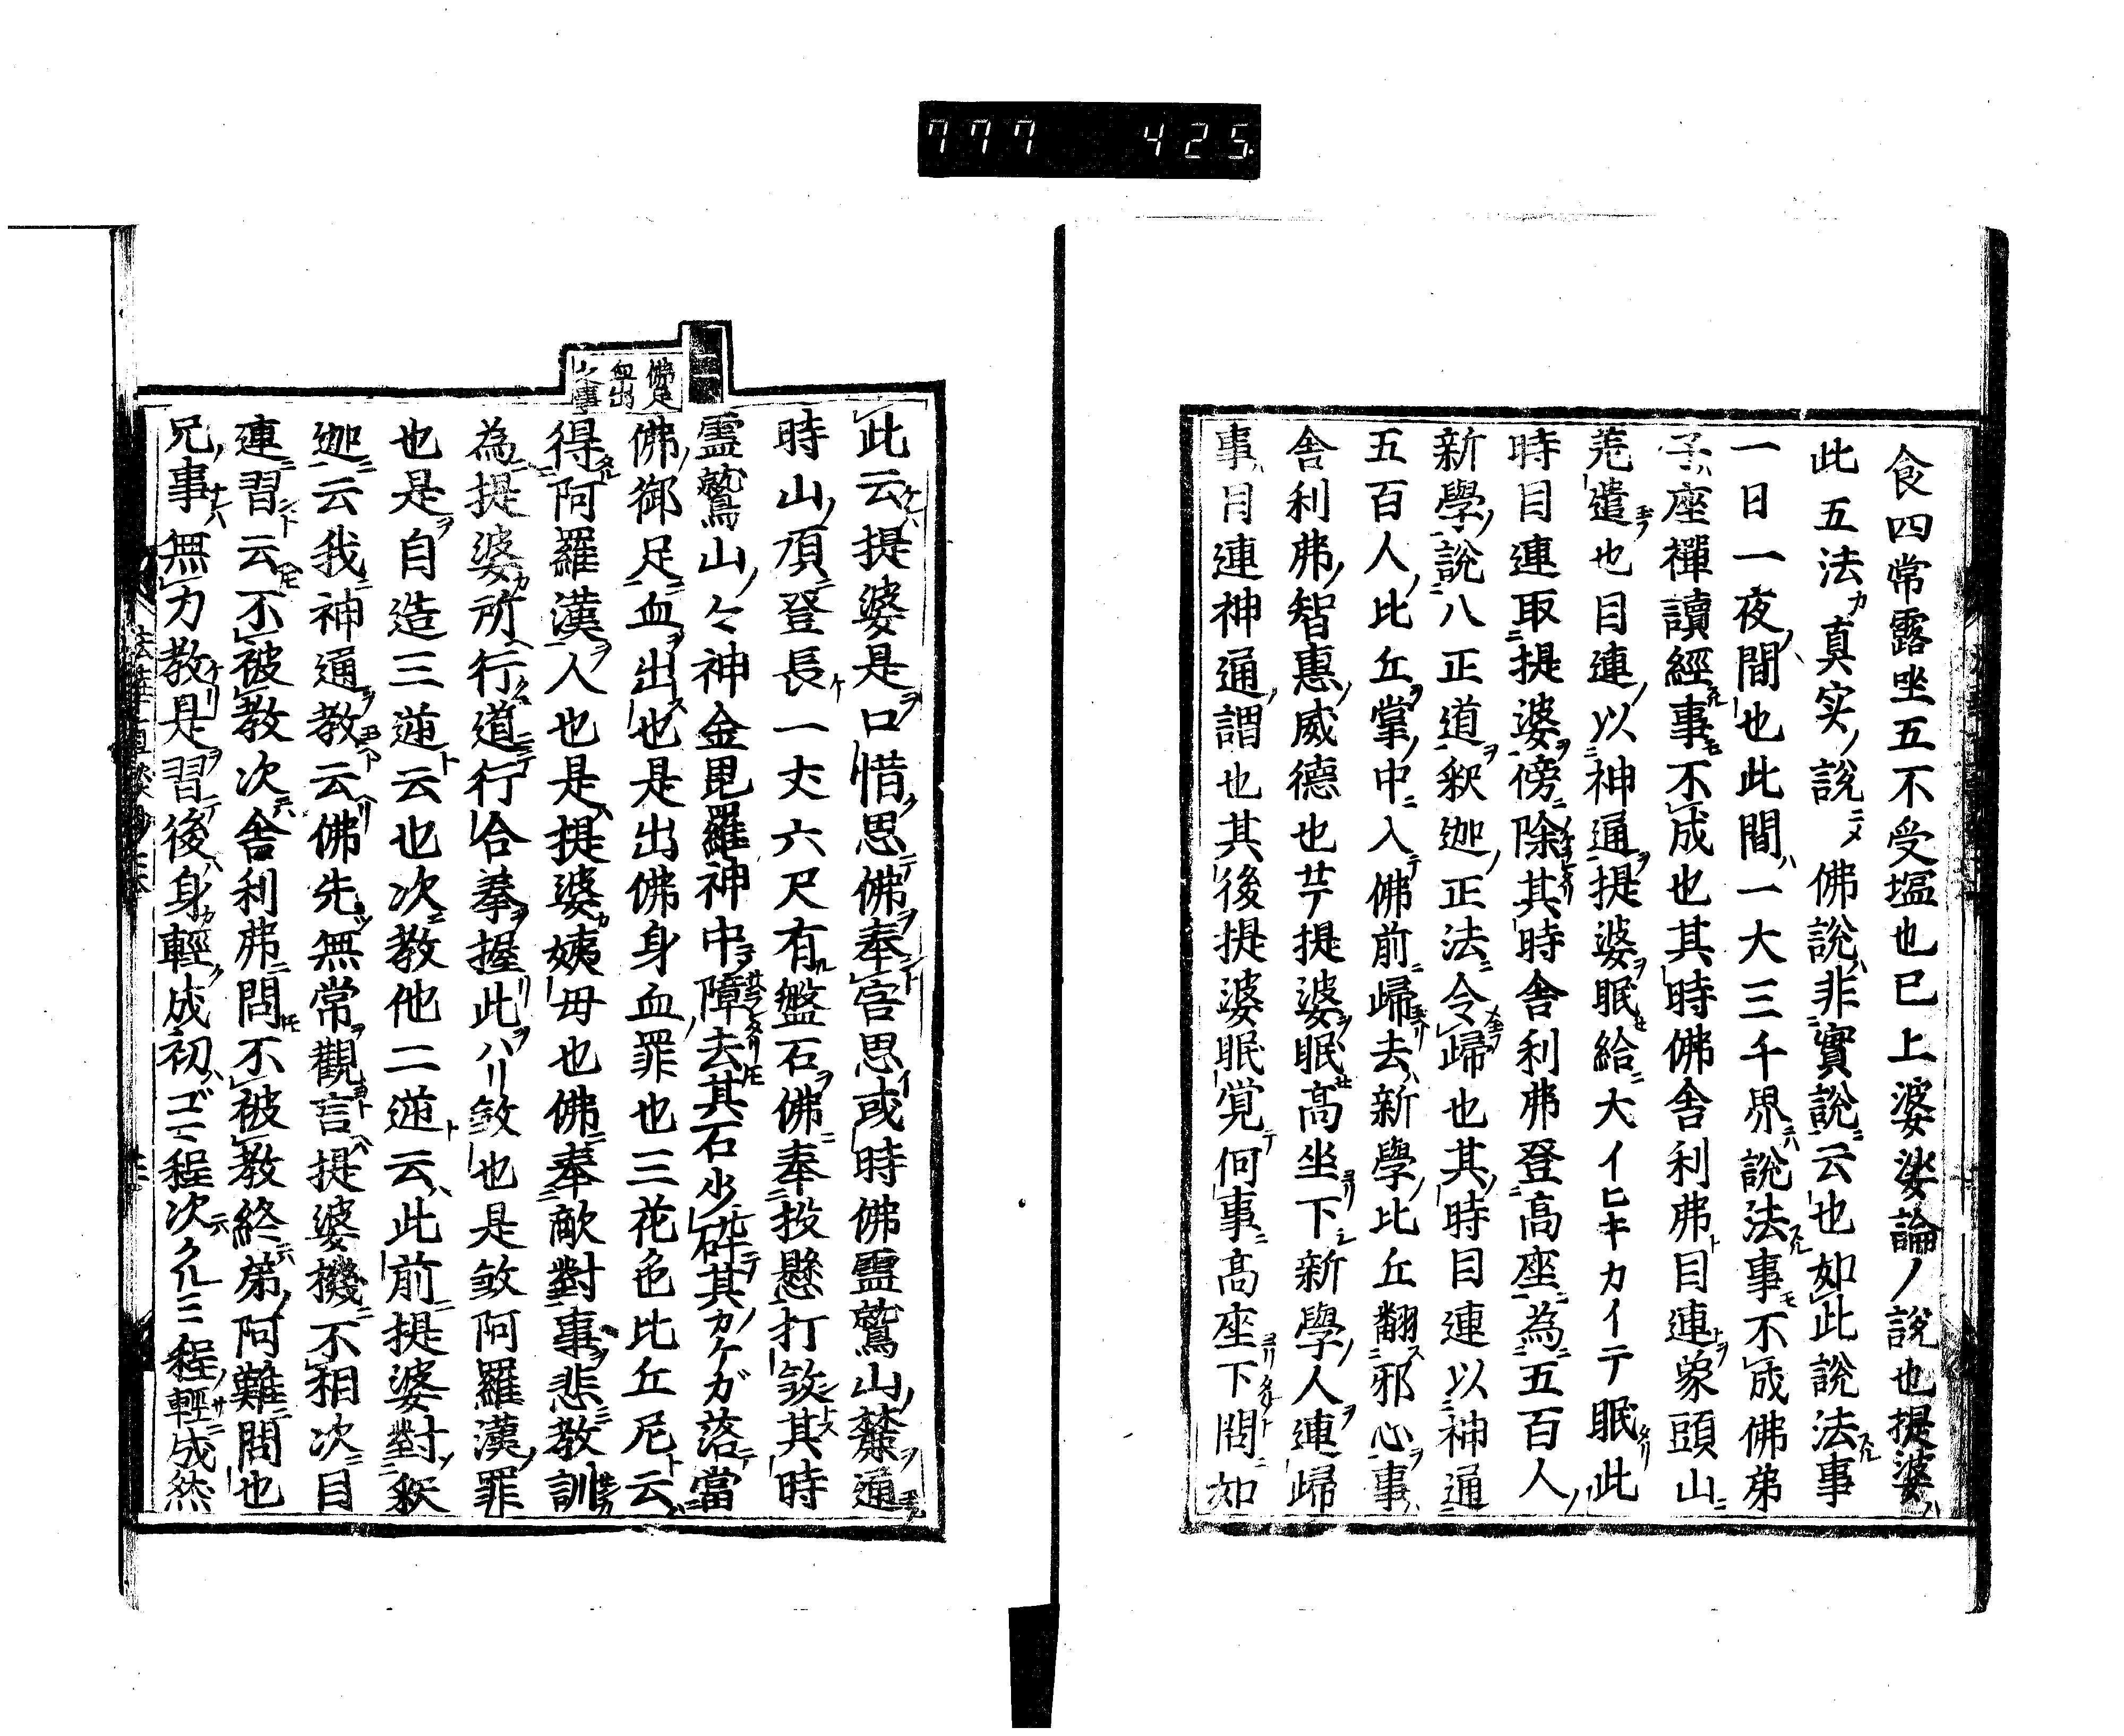 777 425
食四常露坐五不受塩也已上婆娑論ノ說也提婆ハ
此五法カ真実ノ說ニメ佛說ハ非實說云也如此說法事
一日一夜ノ間也此間ハ一大三千界說法事モ不成佛弟
子ハ座禪讀經事モ不成也其時佛舍利弗ト目連ヲ象頭山ニ
羗遣也目連ノ以神通ヲ提婆ヲ眠給ニ大イヒキカイテ眠此
時目連取提婆ヲ傍ニ除其時舍利弗登高座為五百人ノ
新學ノ說八正道ヲ釈迦ノ正法ニ令歸也其時目連以神通
五百人ノ比丘ヲ掌ノ中ニ入テ佛前ニ歸去ハ新學ノ比丘翻邪心ヲ事ハ
舍利弗ノ智惠ノ威德也サテ提婆ヲ眠高坐ヨリ下シ新學ノ人ヲ連歸
事ハ目連神通ノ謂也其後提婆眠覚テ何事ニ高座ヨリ下問ニ如
佛足
血出
之事
此云提婆是ヲ口惜ク思テ佛ヲ奉害思或時佛靈鷲山ノ麓ヲ通
時山ノ頂ニ登長ケ一丈六尺有盤石ヲ佛ニ奉投懸打敛其時
靈鷲山ノ々神金毘羅神中ヲ障去其石少シ砕テ其ノカケガ落テ當
佛ノ御足ニ血ヲ出也是出佛身血ノ罪也三花色比丘尼ト云ハ
得阿羅漢ヲ人也是ハ提婆カ姨母也佛ニ奉敵對事ヲ悲ミ教訓
為提婆カ所ヘ行道ニテ行合拳ヲ握リ此ヲハリ敛也是敛阿羅漢ノ罪
也是ヲ自造三逆ト云也次ニ教他二逆ト云ハ此前提婆對ノ釈
迦ニ云我ニ神通ヲ教云ヘリ佛先ツ無常ヲ觀言ヘハ提婆機ニ不相次ニ目
連ニ習云不被教次舍利弗ニ問不被教終弟ノ阿難ニ問也
兄ノ事無力教是ヲ習テ後ハ身カ輕ク成初ハゴマ程次クルミ程ノ輕サニ成然